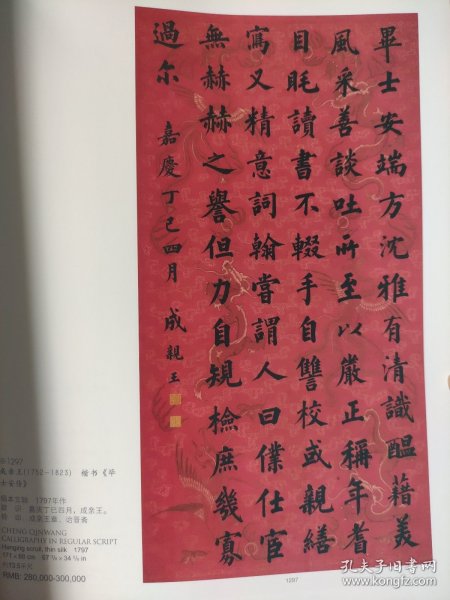 畢士安端方沈雅有清識醖藉美
風采善談吐所至以嚴正稱年耆
目眊讀書不輟手自讐校或親繕
寫又精意詞翰嘗謂人曰僕仕宦
無赫赫之譽但力自規檢庶幾寡
過尓
嘉慶丁巳四月 成親王
1297
成亲王(1752-1823) 楷书《毕
士安传》
绢本立轴 1797年作
款识：嘉庆丁巳四月，成亲王。
钤印：成亲王章、诒晋斋
CHENG QINWANG
CALLIGRAPHY IN REGULAR SCRIPT
Hanging scroll, thin silk 1797
约13.5平尺
RMB: 280,000-300,000
1297
孔夫子旧书网